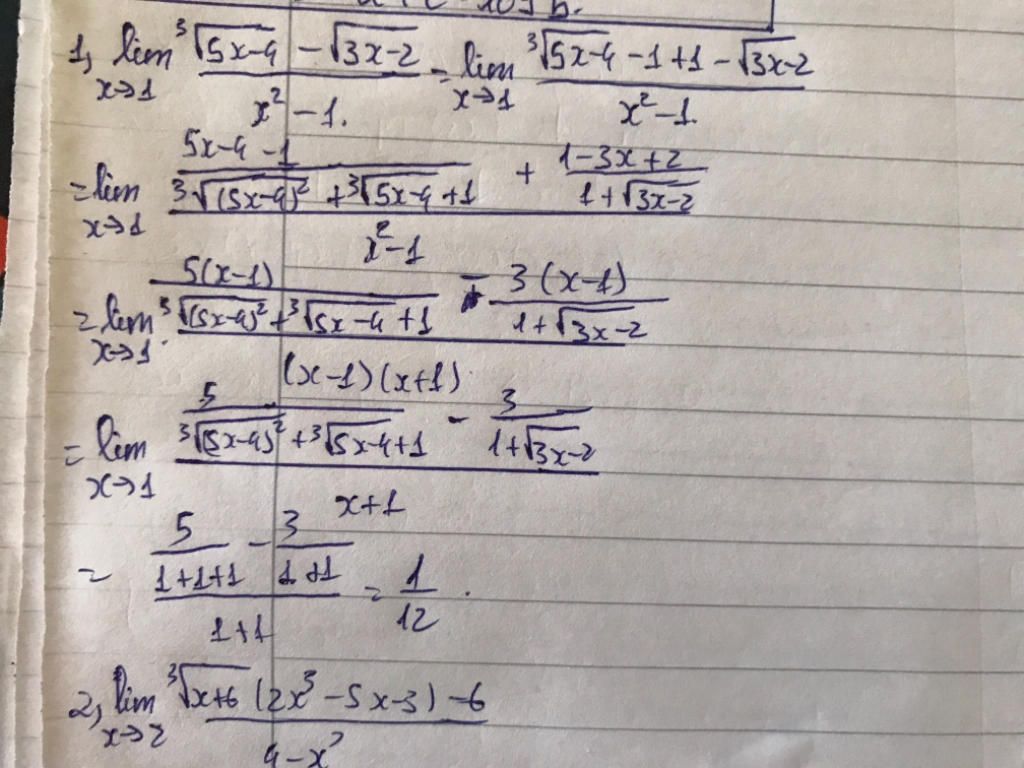 1, lim x→1 (∛(5x-4) - √(3x-2)) / (x² - 1) = lim x→1 (∛(5x-4) - 1 + 1 - √(3x-2)) / (x² - 1)
= lim x→1 ((5x-4-1) / (∛((5x-4)²) + ∛(5x-4) + 1) + (1-3x+2) / (1+√(3x-2))) / (x² - 1)
= lim x→1 (5(x-1) / (∛((5x-4)²) + ∛(5x-4) + 1) - 3(x-1) / (1+√(3x-2))) / ((x-1)(x+1))
= lim x→1 (5 / (∛((5x-4)²) + ∛(5x-4) + 1) - 3 / (1+√(3x-2))) / (x+1)
= (5 / (1+1+1) - 3 / (1+1)) / (1+1) = 1/12.
2, lim x→2 (∛(x+6) (2x³ - 5x - 3) - 6) / (4 - x²)